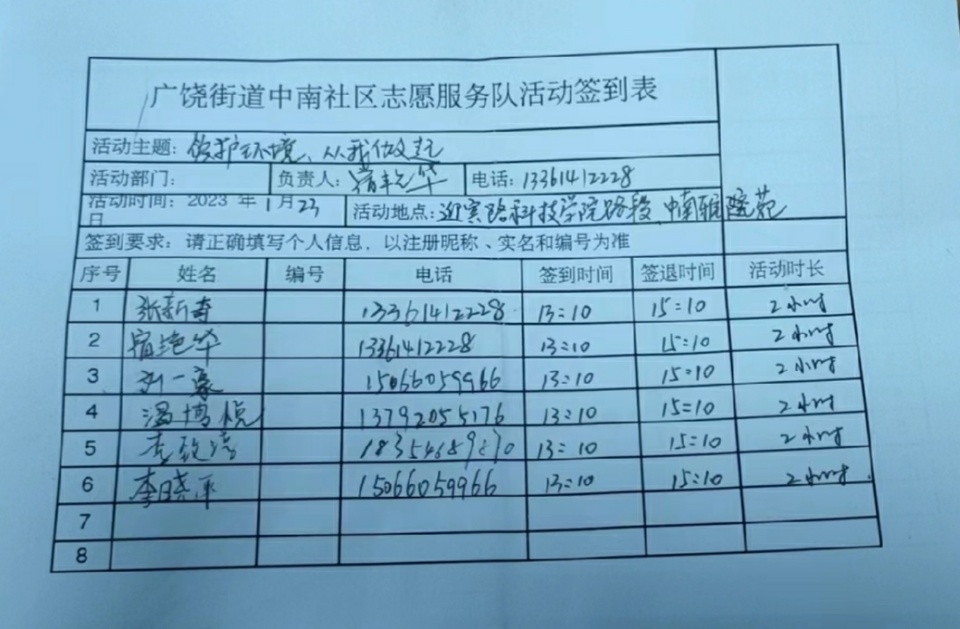 广饶街道中南社区志愿服务队活动签到表
活动主题: 保护环境、从我做起
活动部门: 负责人: 宿艳华 电话: 13361412228
活动时间: 2023 年 1 月 23 日 活动地点: 迎宾路科技学院路段 中南雅苑
签到要求: 请正确填写个人信息, 以注册昵称、实名和编号为准
序号 姓名 编号 电话 签到时间 签退时间 活动时长
1 张新奇 13361412228 13:10 15:10 2小时
2 宿艳华 13361412228 13:10 15:10 2小时
3 刘一豪 15066059966 13:10 15:10 2小时
4 温博悦 13792055176 13:10 15:10 2小时
5 李 13:10 15:10 2小时
6 李晓平 15066059966 13:10 15:10 2小时
7
8